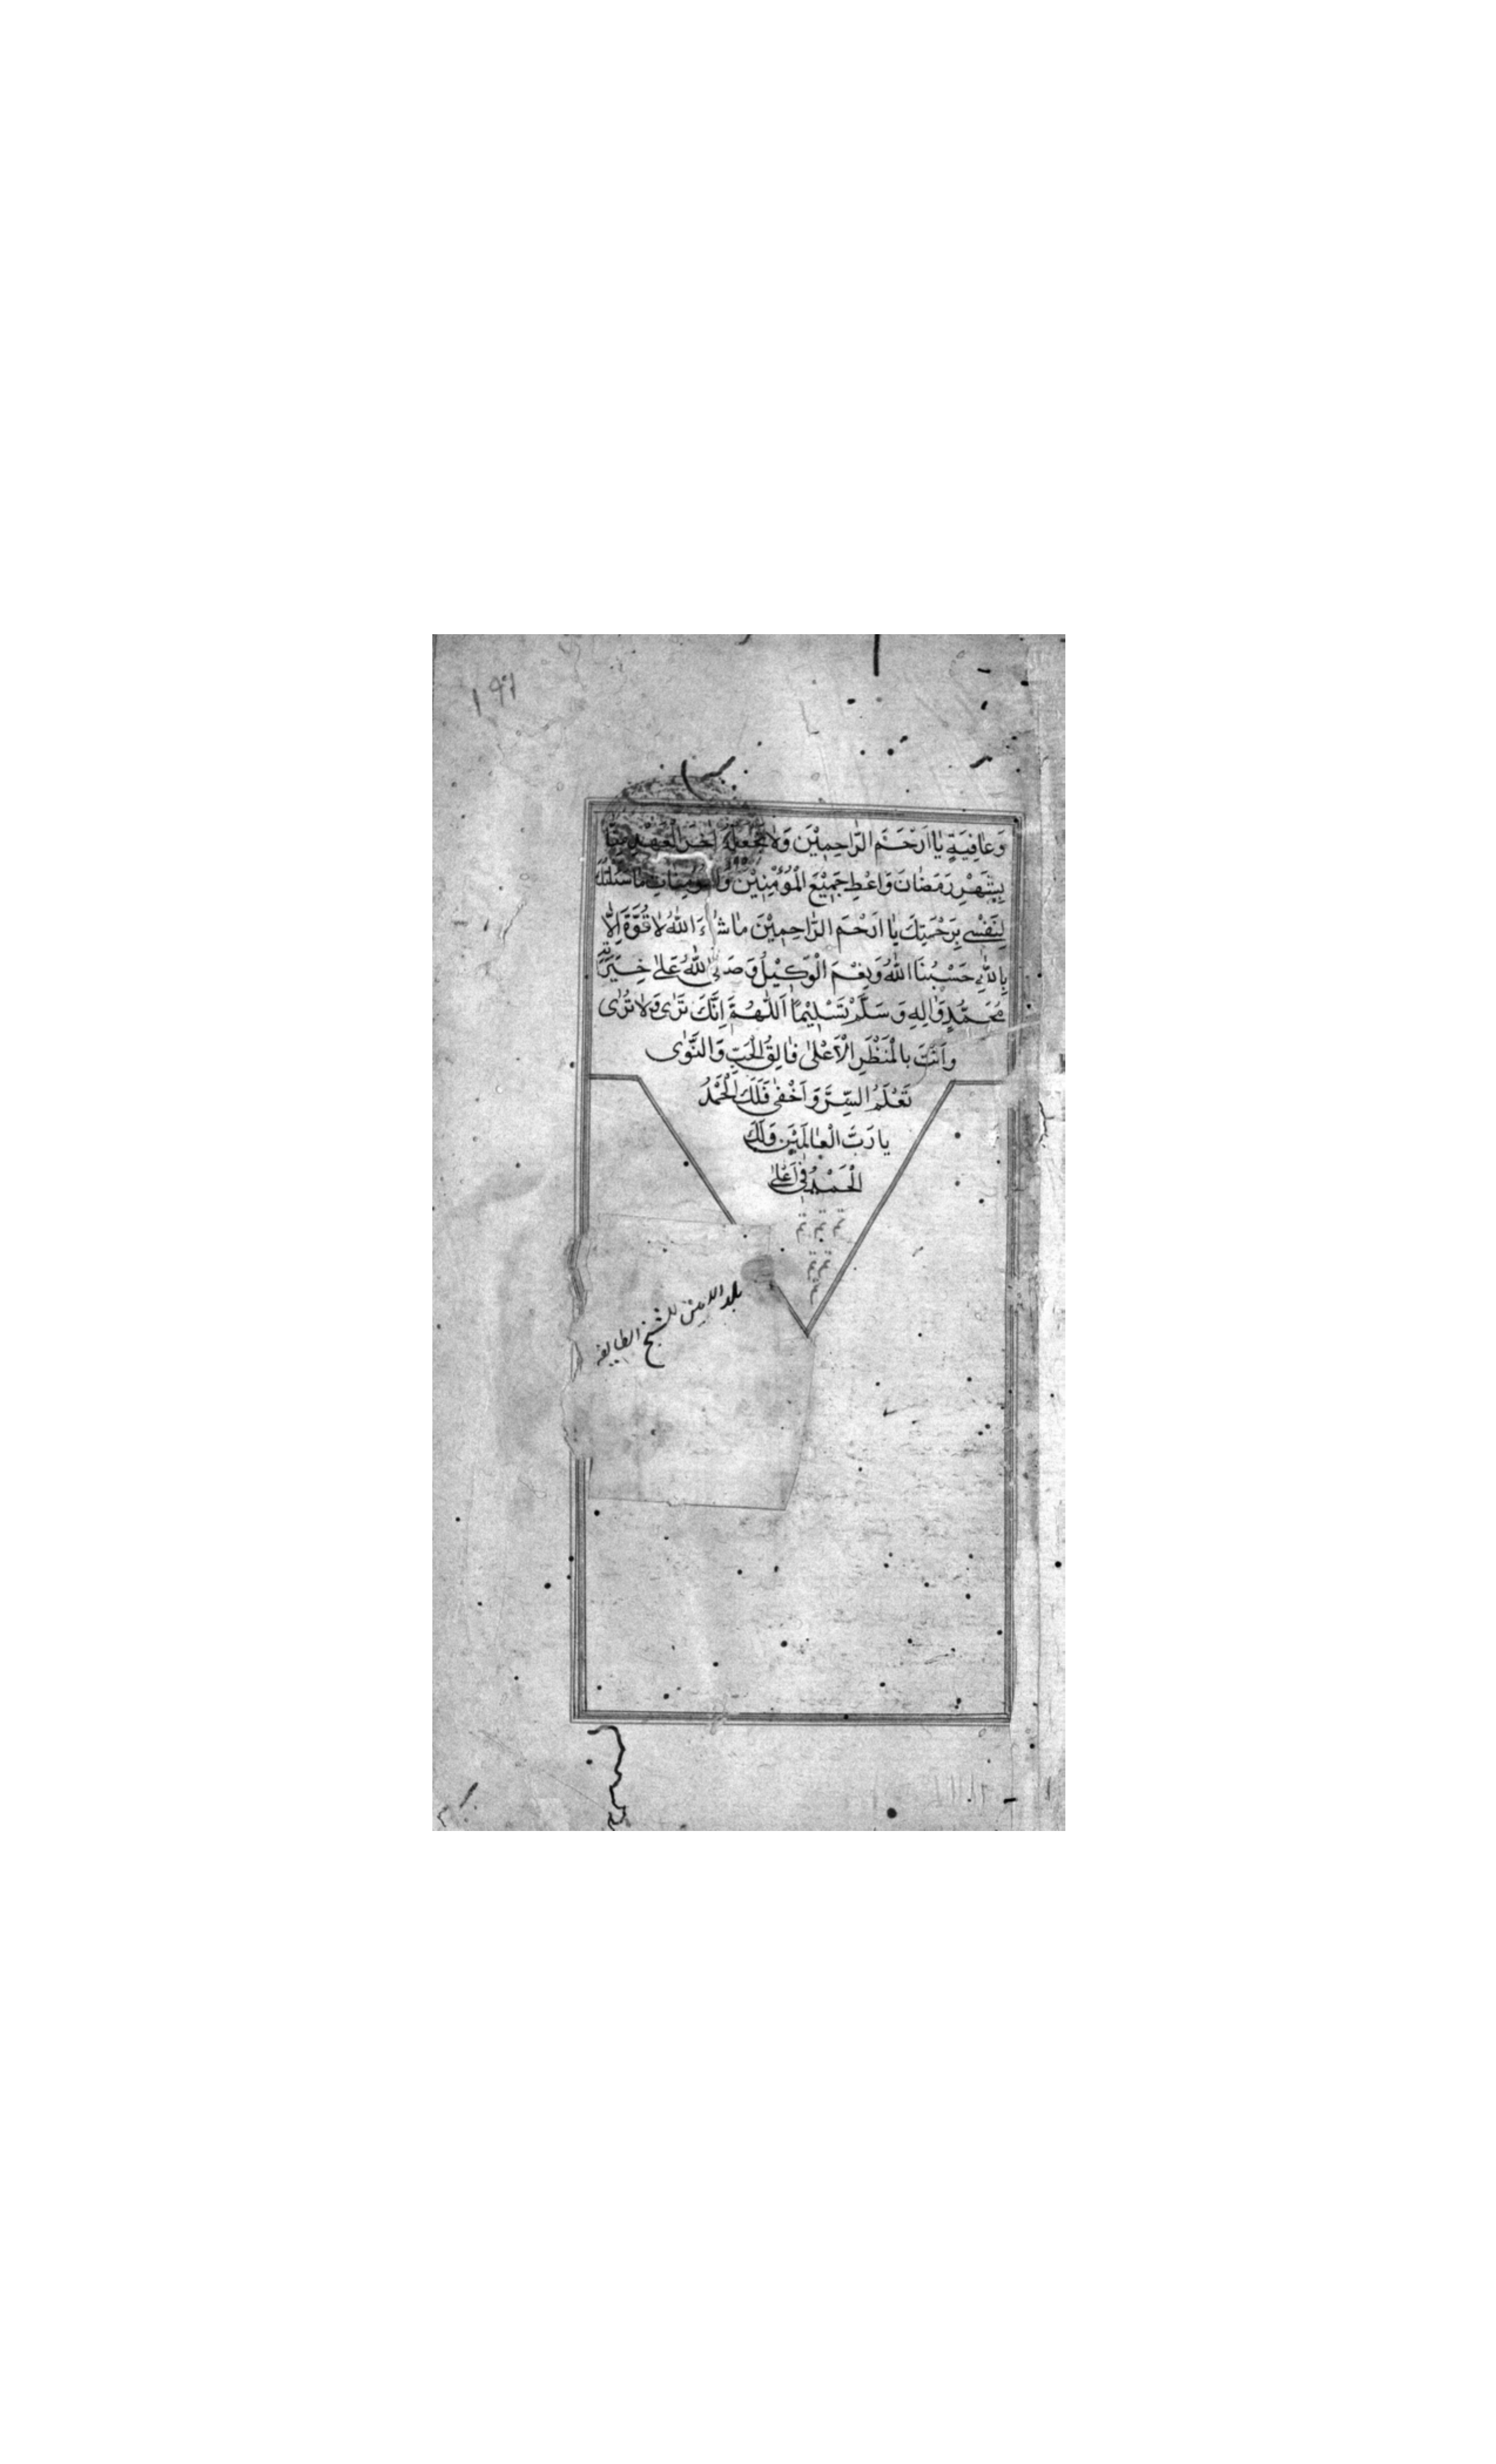 ١٩١
وَعٰافِيَةٍ يٰا اَرْحَمَ الرّٰاحِمِيْنَ وَلٰا تَجْعَلْهُ اٰخِرَ الْعَهْدِ مِنّٰا
بِشَهْرِ رَمَضٰانَ وَاعْطِ جَمِيْعَ الْمُؤْمِنِيْنَ وَالْمُؤْمِنٰاتِ مٰا سَئَلْتُكَ
لِنَفْسِى بِرَحْمَتِكَ يٰا اَرْحَمَ الرّٰاحِمِيْنَ مٰا شٰاءَ اللّٰهُ لٰا قُوَّةَ اِلّٰا
بِاللّٰهِ حَسْبُنَا اللّٰهُ وَنِعْمَ الْوَكِيْلُ وَصَلَّى اللّٰهُ عَلٰى خِيَرَتِهِ
مُحَمَّدٍ وَاٰلِهِ وَسَلَّمَ تَسْلِيْمًا اَللّٰهُمَّ اِنَّكَ تَرٰى وَلٰا تُرٰى
وَاَنْتَ بِالْمَنْظَرِ الْاَعْلٰى فٰالِقُ الْحَبِّ وَالنَّوٰى
تَعْلَمُ السِّرَّ وَاَخْفٰى فَلَكَ الْحَمْدُ
يٰا رَبَّ الْعٰالَمِيْنَ وَلَكَ
الْحَمْدُ فِى اَعْلٰى
تم تم تم
تم تم
تم
بلد الامين للشيخ الطايفه